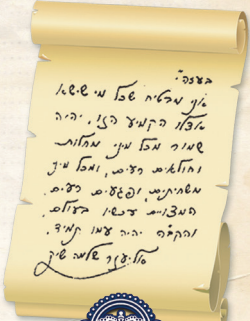 בעזה״י
אני מבטיח שכל מי שישא
אצלו הקמיע הזו, יהיה
שמור מכל מיני מחלות
וחולאים רעים, ומכל מיני
משחיתים, ופגעים רעים,
המצויים עכשיו בעולם,
והקב״ה יהיה עמו תמיד.
אליעזר שלמה שיק